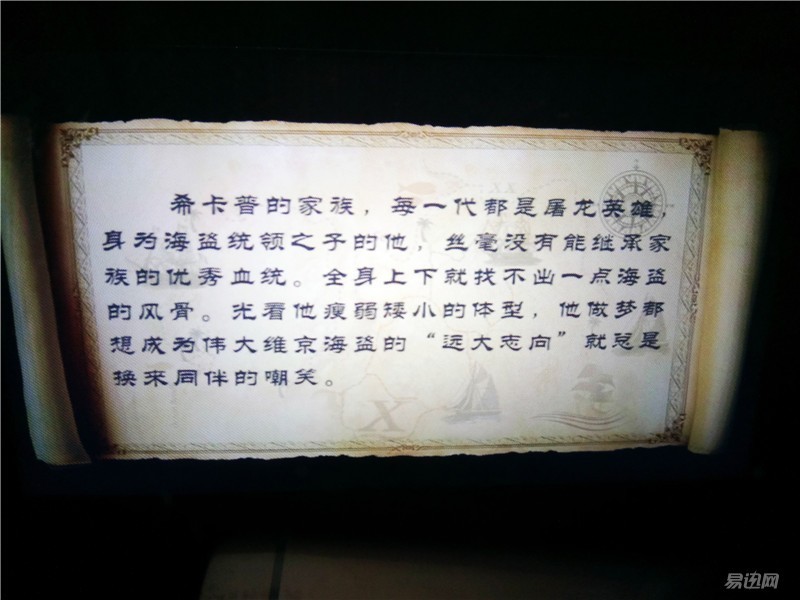 希卡普的家族，每一代都是屠龙英雄，
身为海盗统领之子的他，丝毫没有能继承家
族的优秀血统。全身上下就找不出一点海盗
的风骨。光看他瘦弱矮小的体型，他做梦都
想成为伟大维京海盗的“远大志向”就总是
换来同伴的嘲笑。
X
易迅网